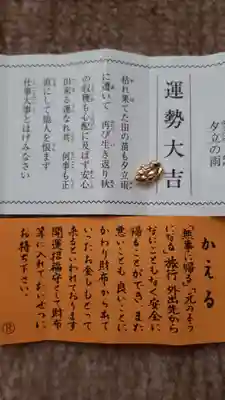 夕立の雨
運勢大吉
枯れ果てた田の苗も夕立雨
に遭いて 再び生き返り秋
の収穫も心配に及ばず安心
出来る運なれ共、何事も正
直にして他人を恨まず
仕事大事とはげみなさい
かえる
「無事に帰る」「元のさや
になる」旅行、外出先から
なにごともなく安全に
帰ることができ、また
悪いことも良いことに
かわり財布からあて
いったお金しもどって
来るといわれております
開運招福守として財布
等に入れておいせつに
お持ち下さい。